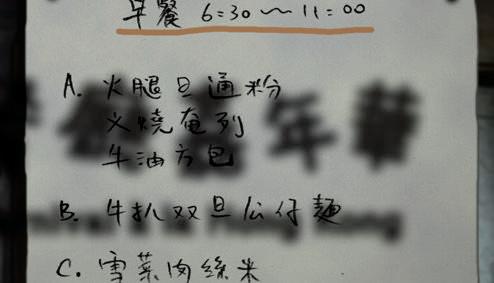 早餐 6:30～11:00
A. 火腿旦通粉
叉烧奄列
牛油方包
B. 牛扒双旦公仔麵
C. 雪菜肉絲米